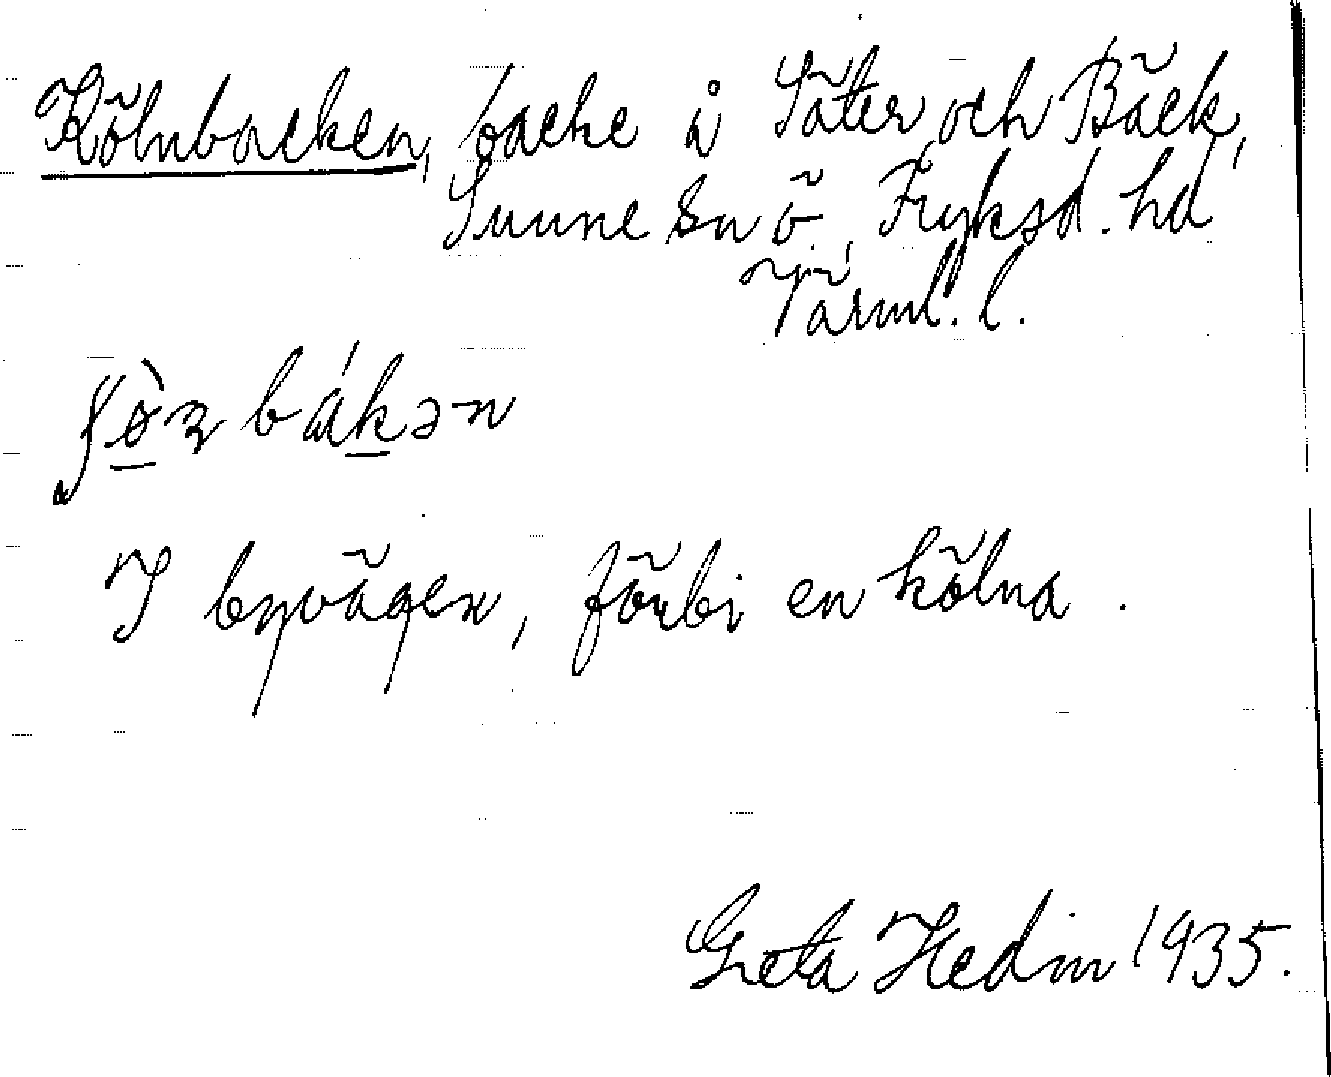 Kölnbacken, backe å Säter och Bäck,
Sunne sn ö. Fryksd. hd
Värml. l.
bákən
I byvägen, förbi en kölna.
Greta Hedin 1935.